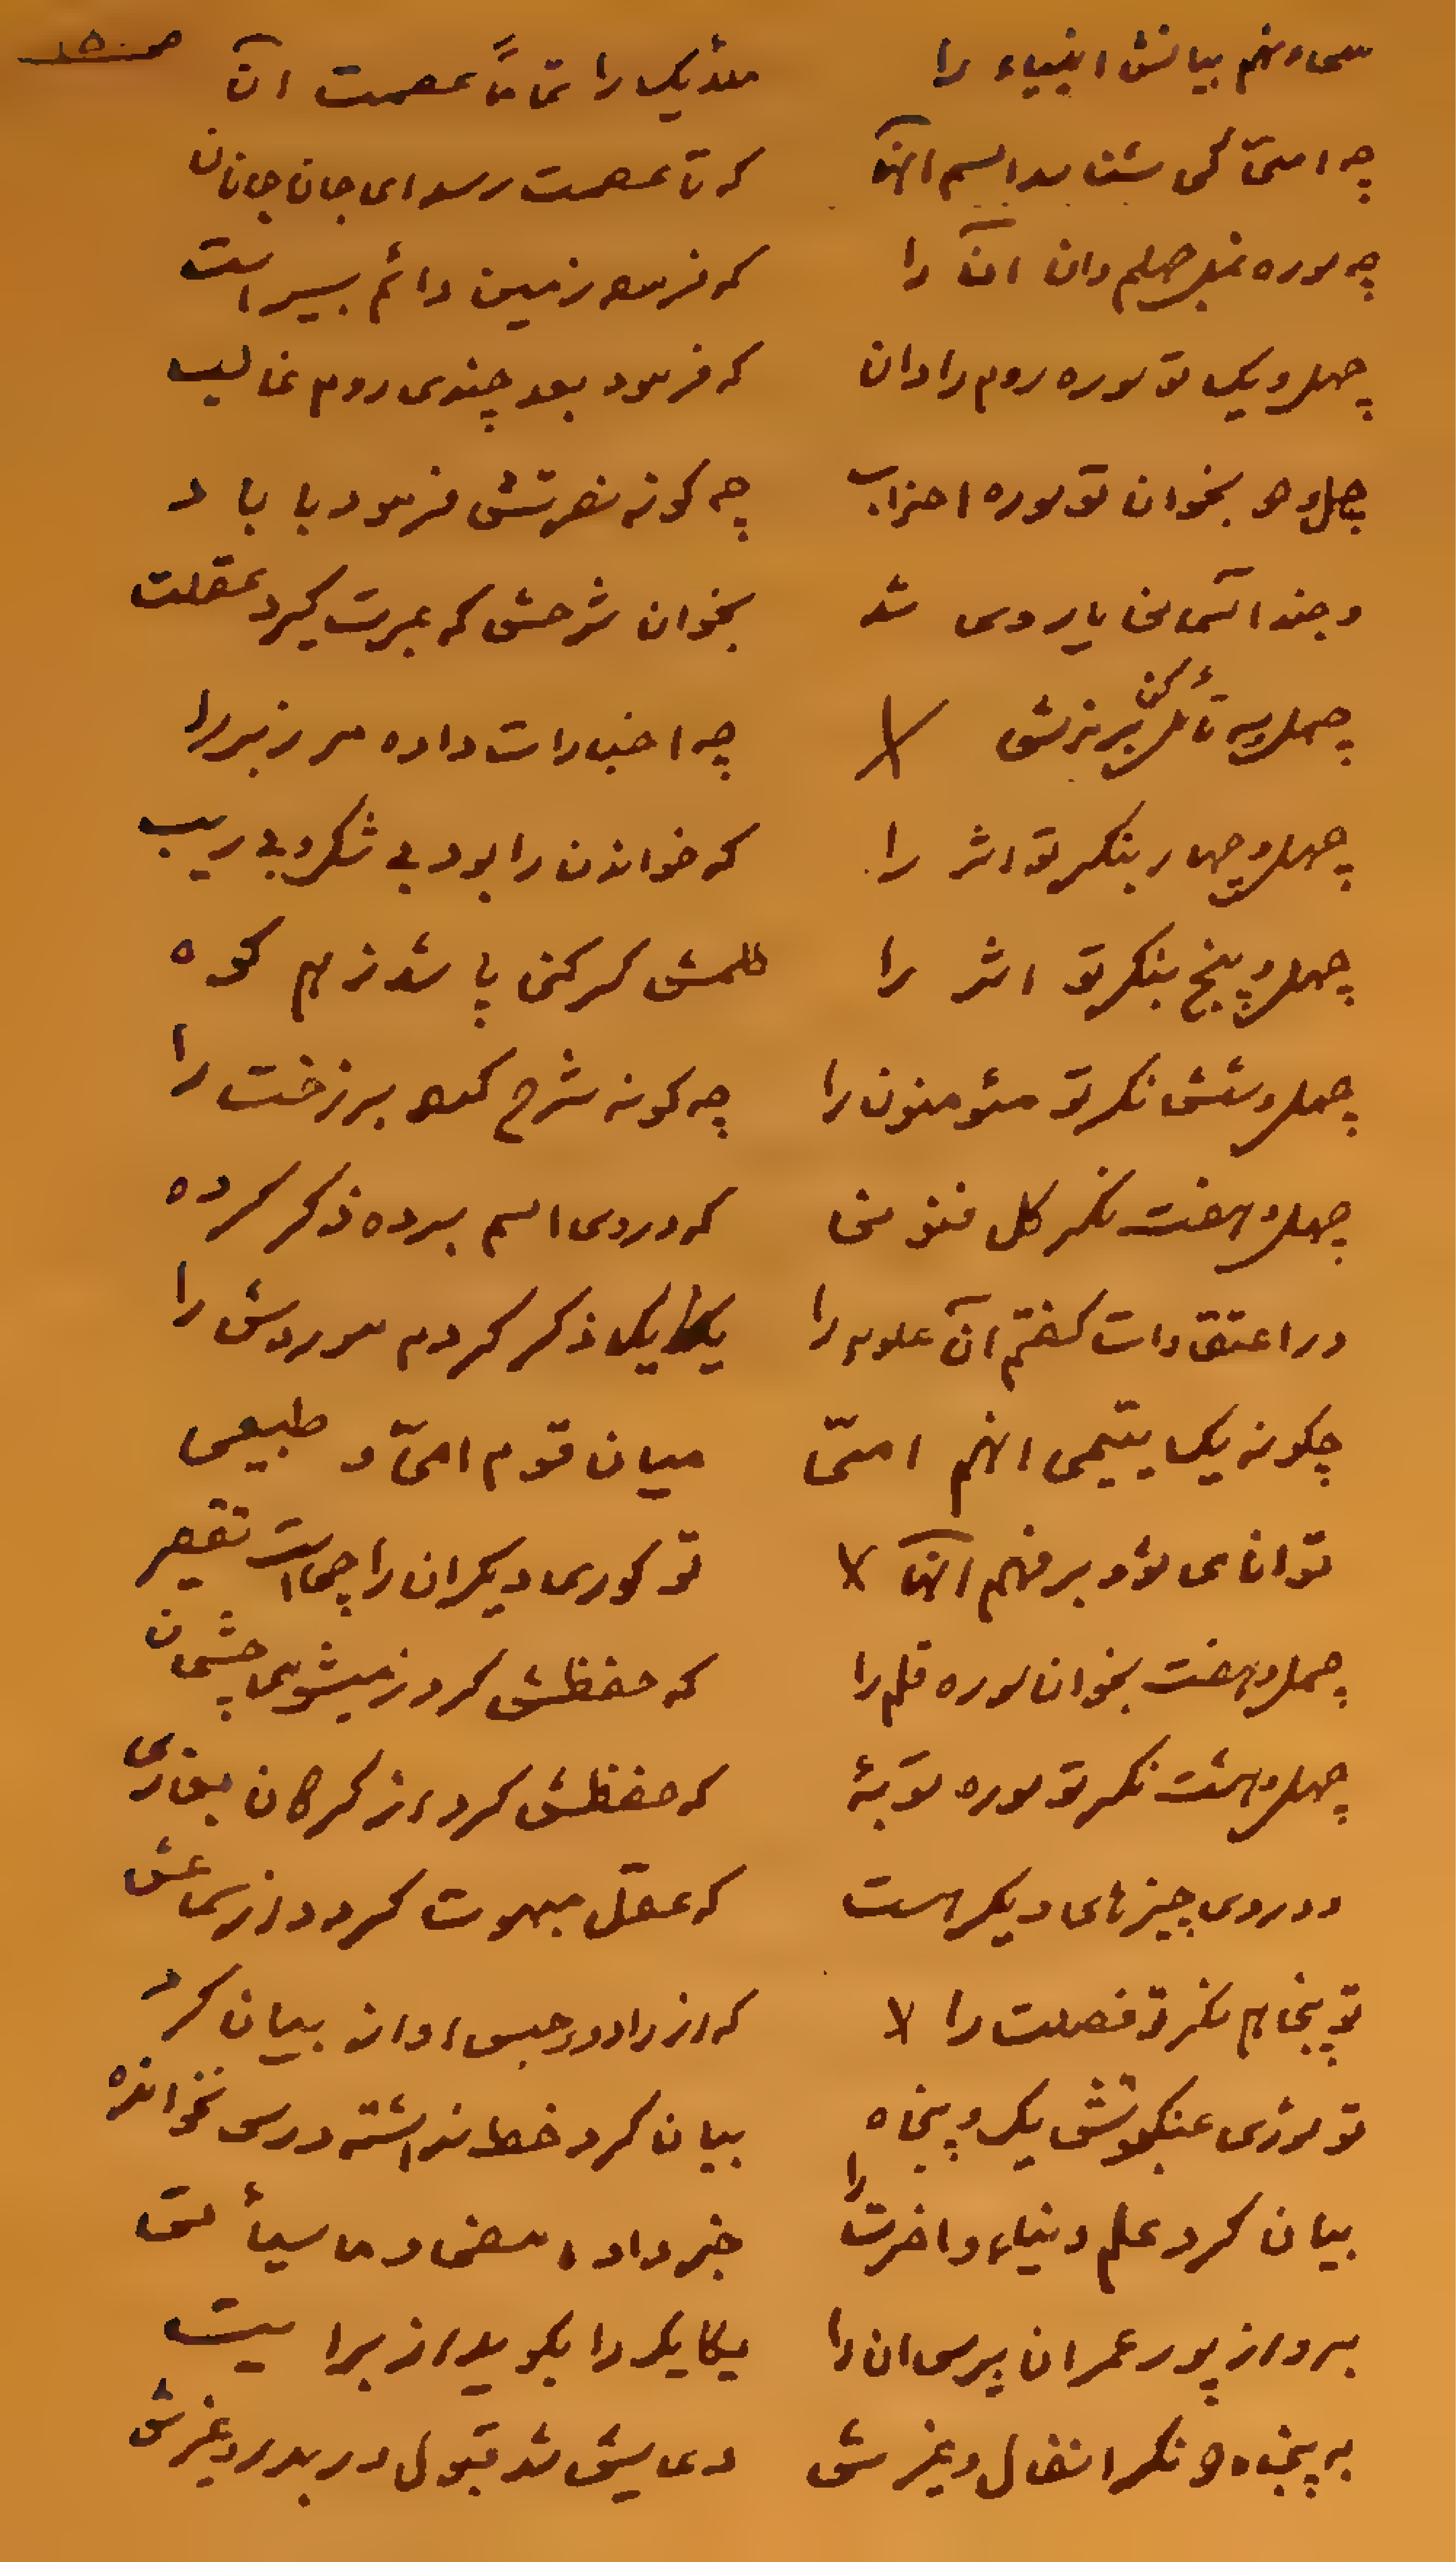 سی و نهم بیانش انبیاء را ملائیک را تماماً عصمت آن
چه امّی کی شناسد اسم آنها که تا عصمت رسد ای جان جانان
چه سوره نمل چهلم دان آن را که فرموده زمین دائم بسیر است
چهل و یک تو سوره روم را دان که فرمود بعد چندی روم غالب
چهل و دو بخوان تو سوره احزاب چه گونه نصرتش فرمود با باد
و چند اسمای یاروی شد بخوان شرحش که عبرت گیرد عقلت
چهل و سه تأمل کن بر چه اخبارات داده سر زبر را
چهل و چهار بنگر تو اثر را که خواندن را بود بی شک و بی ریب
چهل و پنج بنگر تو اثر را طلمش گر کنی پاشد ز هم کوه
چهل و شش نگر تو مئومنون را چه گونه شرح کرده برزخت را
چهل و هفت نگر کل فنونی که در وی اسم برده ذکر کرده
در اعتقادات گفتم آن علوم را یکایک ذکر کردم موردش را
چگونه یک یتیمی انهم امّی میان قوم امّی و طبیعی
توانای شود بر فهم آنها تو کوری دیگران را چی است تقصیر
چهل و هفت بخوان سوره قلم را که حفظش کرد ز میشومی چشمان
چهل و هشت نگر تو سوره توبه که حفظش کرد از گرگان بغاری
و در وی چیزهای دیگر هست که عقل مبهوت گردد از سماعش
تو پنجاهم نگر تو فصلت را که از راد و رجس اوانه بیان کرد
تو سوره‌ی عنکبوتش یک و پنجاه بیان کرد خط نداشته درسی نخوانده
بیان کرد علم دنیاء و اخرت را خبر داده مضی و ما سیأتی
برو از پور عمران پرس ان را یکایک را بگوید از برایت
به پنجاه و دو نگر انفال و غیرش دعایش شد قبول در بدر و غیرش